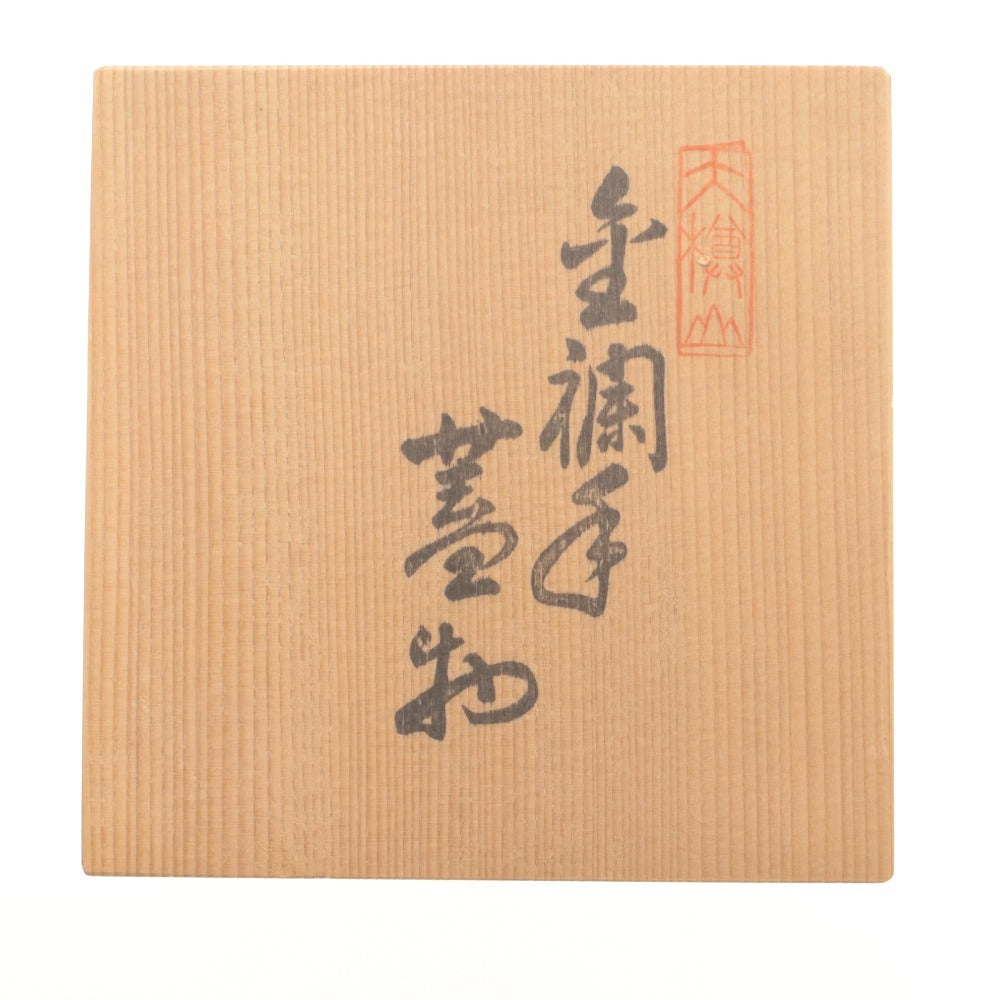 天樽山
金襴手
蓋物